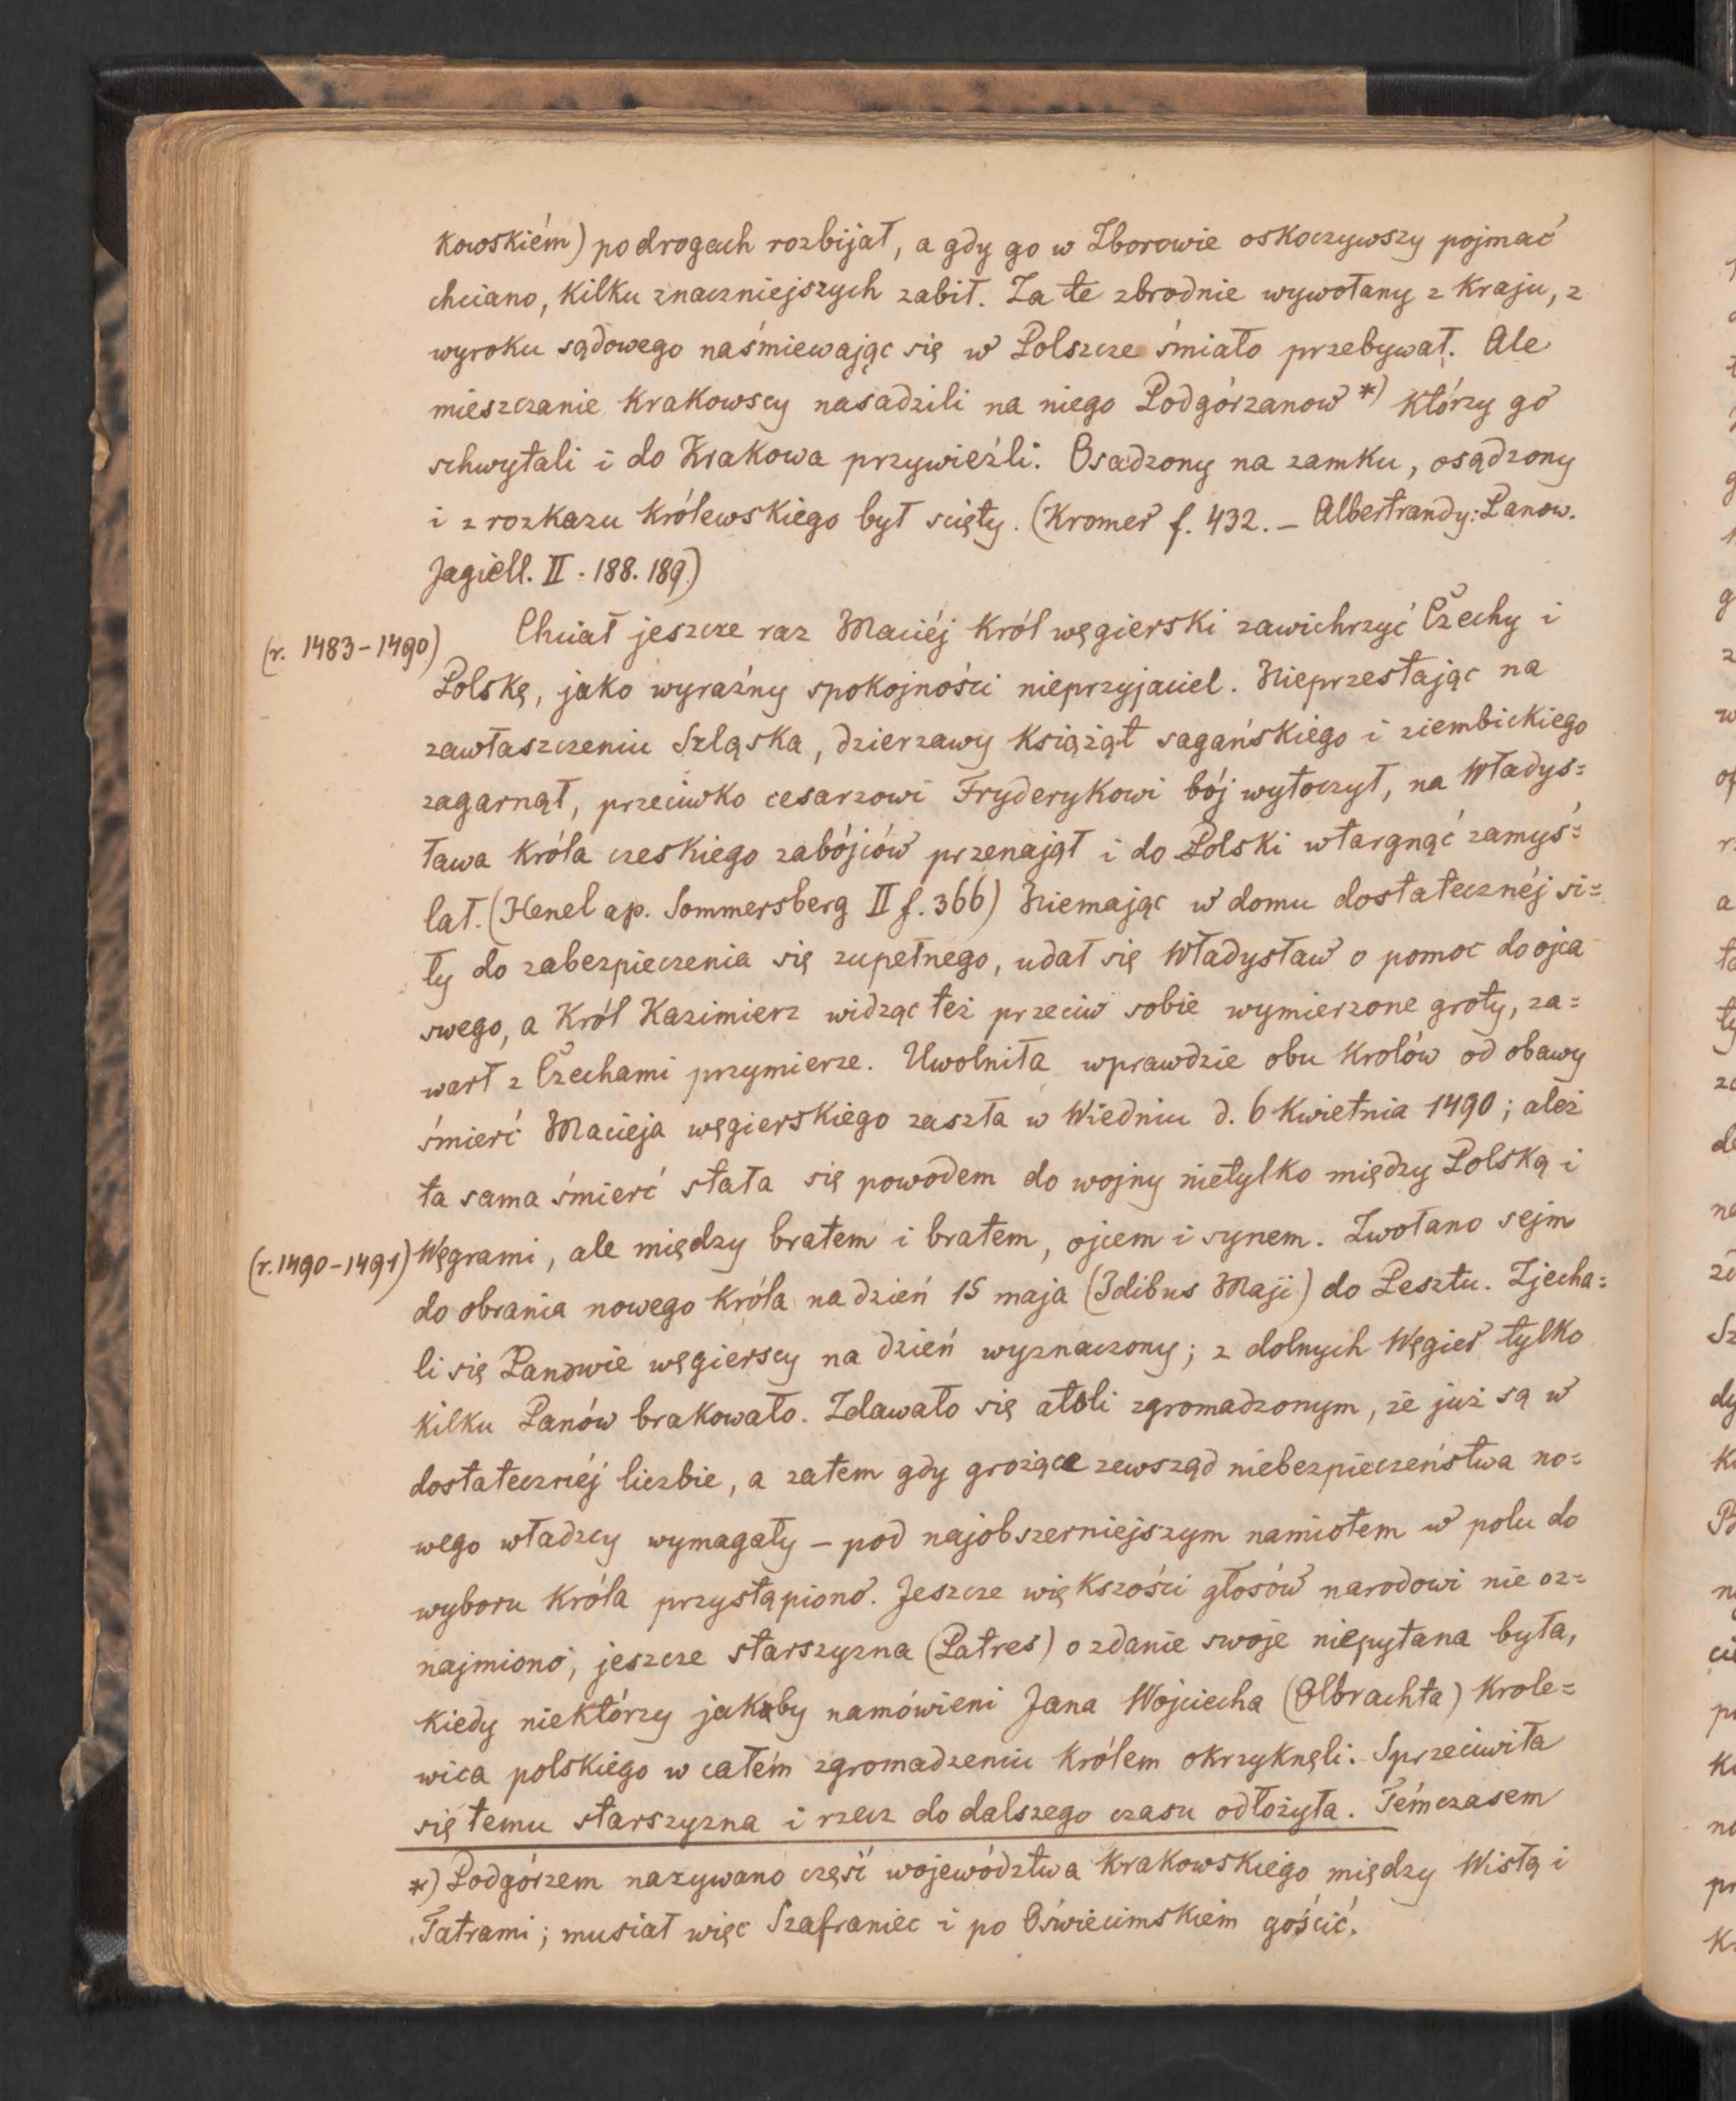 kowskiém) po drogach rozbijał, a gdy go w Zborowie oskoczywszy pojmać
chciano, kilku znaczniejszych zabił. Za te zbrodnie wywołany z kraju, z
wyroku sądowego naśmiewając się w Polszcze śmiało przebywał. Ale
mieszczanie krakowscy nasadzili na niego Podgórzanow *) którzy go
schwytali i do Krakowa przywieźli. Osadzony na zamku, osądzony
i z rozkazu królewskiego był scięty. (Kromer f. 432. – Albertrandy: Panow.
Jagiell. II. 188. 189.)
(r. 1483-1490) Chciał jeszcze raz Maciéj król węgierski zawichrzyć Czechy i
Polskę, jako wyraźny spokojności nieprzyjaciel. Nieprzestając na
zawłaszczeniu Szląska, dzierzawy książąt sagańskiego i ziembickiego
zagarnął, przeciwko cesarzowi Fryderykowi bój wytoczył, na Władys=
ława króla czeskiego zabójców przenajął i do Polski wtargnąć zamyś=
lał. (Henel ap. Sommersberg II f. 366) Niemając w domu dostatecznéj si=
ły do zabezpieczenia się zupełnego, udał się Władysław o pomoc do ojca
swego, a Król Kazimierz widząc też przeciw sobie wymierzone groty, za=
warł z Czechami przymierze. Uwolniła wprawdzie obu królów od obawy
śmierć Macieja węgierskiego zaszła w Wiedniu d. 6 kwietnia 1490; aleź
ta sama śmierć stała się powodem do wojny nietylko między Polską i
(r. 1490-1491) Węgrami, ale między bratem i bratem, ojcem i synem. Zwołano sejm
do obrania nowego króla na dzień 15 maja (Idibus Maji) do Pesztu. Zjecha=
li się Panowie węgierscy na dzień wyznaczony; z dolnych Węgier tylko
kilku Panów brakowało. Zdawało się atoli zgromadzonym, że już są w
dostatecznéj liczbie, a zatem gdy grożące zewsząd niebezpieczeństwa no=
wego władzcy wymagały – pod najobszerniejszym namiotem w polu do
wyboru króla przystąpiono. Jeszcze większości głosów narodowi nie oz=
najmiono, jeszcze starszyzna (Patres) o zdanie swoje niepytana była,
kiedy niektórzy jakoby namówieni Jana Wojciecha (Olbrachta) krole=
wica polskiego w całém zgromadzeniu królem okrzyknęli. Sprzeciwiła
się temu starszyzna i rzecz do dalszego czasu odłożyła. Témczasem
*) Podgórzem nazywano część województwa krakowskiego między Wisłą i
Tatrami; musiał więc Szafraniec i po Oświecimskiem gościć.